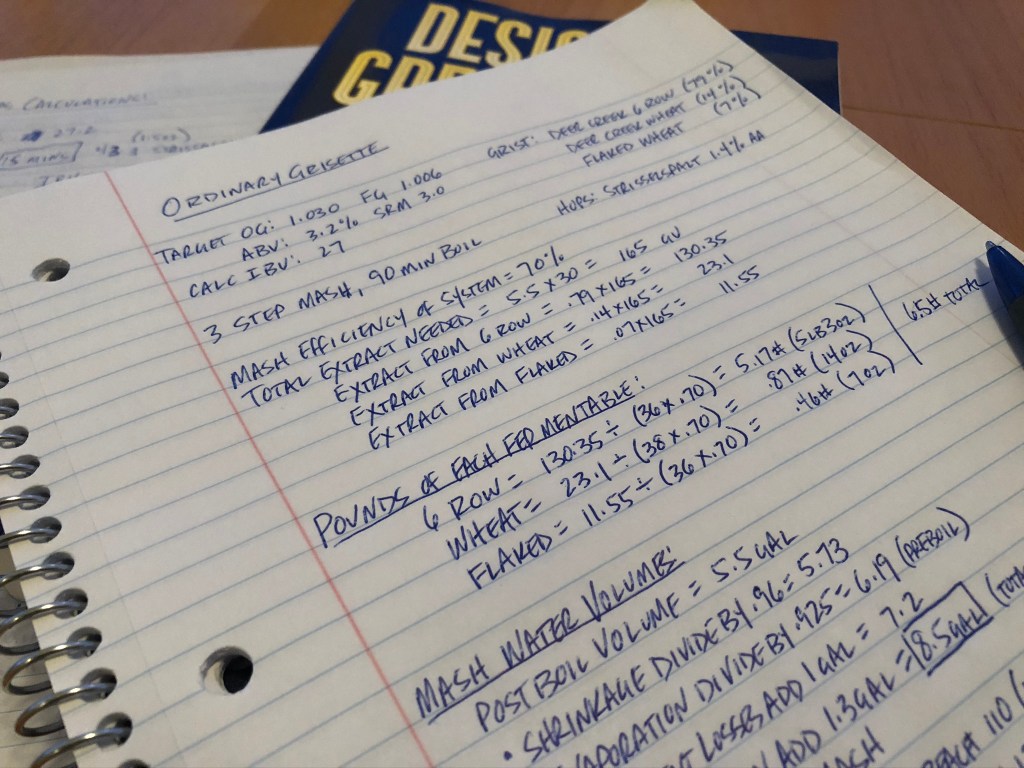 DESIG
GRE
CALCULATIONS
ORDINARY GRISETTE
TARGET OG: 1.030 FG 1.006
ABV: 3.2% SRM 3.0
CALC IBU: 27
GRIST: DEER CREEK 6 ROW (79%)
DEER CREEK WHEAT (14%)
FLAKED WHEAT (7%)
HOPS: STRISSELSPALT 1.4% AA
3 STEP MASH, 90 MIN BOIL
MASH EFFICIENCY OF SYSTEM = 70%
TOTAL EXTRACT NEEDED = 5.5 X 30 = 165 GU
EXTRACT FROM 6 ROW = .79 X 165 = 130.35
EXTRACT FROM WHEAT = .14 X 165 = 23.1
EXTRACT FROM FLAKED = .07 X 165 = 11.55
POUNDS OF EACH FERMENTABLE:
6 ROW = 130.35 ÷ (36 X .70) = 5.17# (5LB 3OZ)
WHEAT = 23.1 ÷ (38 X .70) = .87# (14OZ)
FLAKED = 11.55 ÷ (36 X .70) = .46# (7OZ)
6.5# TOTAL
MASH WATER VOLUMES:
POST BOIL VOLUME = 5.5 GAL
• SHRINKAGE DIVIDE BY .96 = 5.73
APORATION DIVIDE BY .925 = 6.19 (PREBOIL)
T LOSSES ADD 1 GAL = 7.2
ADD 1.3 GAL = 8.5 GAL (TOTA
ASH
EACH 110